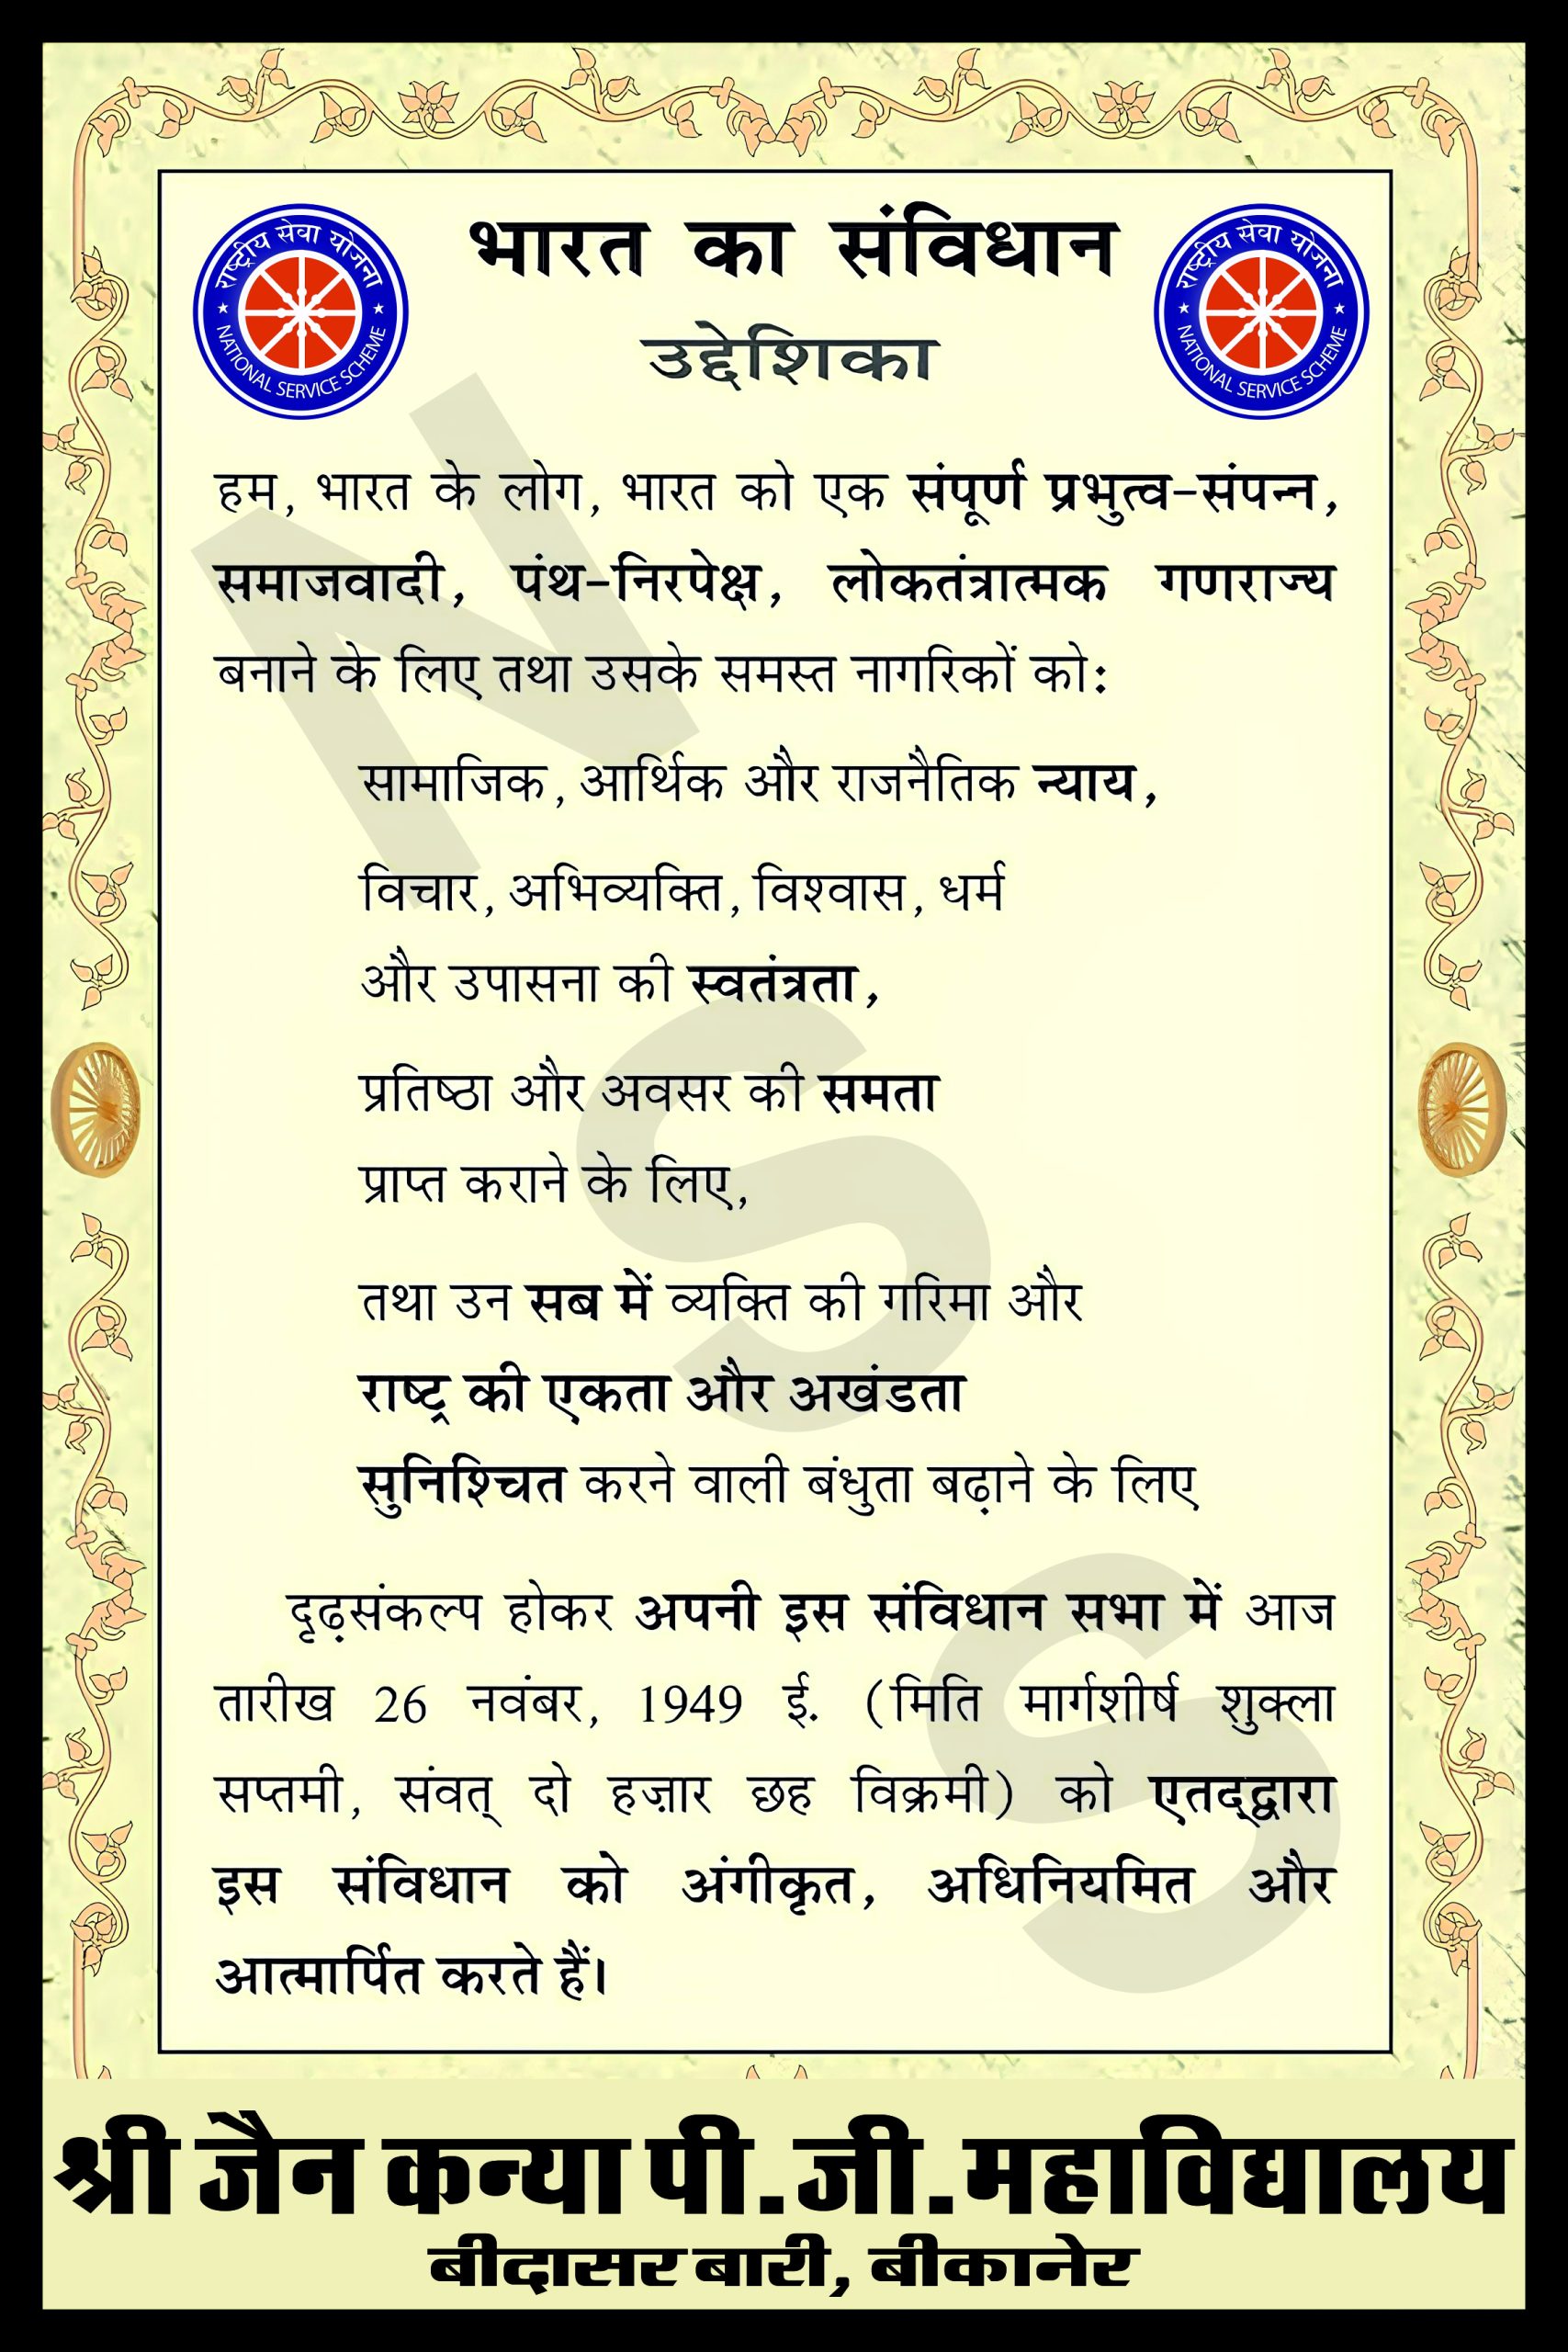 भारत का संविधान
उद्देशिका
राष्ट्रीय सेवा योजना
NATIONAL SERVICE SCHEME
राष्ट्रीय सेवा योजना
NATIONAL SERVICE SCHEME
हम, भारत के लोग, भारत को एक संपूर्ण प्रभुत्व-संपन्न,
समाजवादी, पंथ-निरपेक्ष, लोकतंत्रात्मक गणराज्य
बनाने के लिए तथा उसके समस्त नागरिकों को:
सामाजिक, आर्थिक और राजनैतिक न्याय,
विचार, अभिव्यक्ति, विश्वास, धर्म
और उपासना की स्वतंत्रता,
प्रतिष्ठा और अवसर की समता
प्राप्त कराने के लिए,
तथा उन सब में व्यक्ति की गरिमा और
राष्ट्र की एकता और अखंडता
सुनिश्चित करने वाली बंधुता बढ़ाने के लिए
दृढ़संकल्प होकर अपनी इस संविधान सभा में आज
तारीख 26 नवंबर, 1949 ई. (मिति मार्गशीर्ष शुक्ला
सप्तमी, संवत् दो हज़ार छह विक्रमी) को एतद्द्वारा
इस संविधान को अंगीकृत, अधिनियमित और
आत्मार्पित करते हैं।
N S S
श्री जैन कन्या पी.जी.महाविद्यालय
बीदासर बारी, बीकानेर